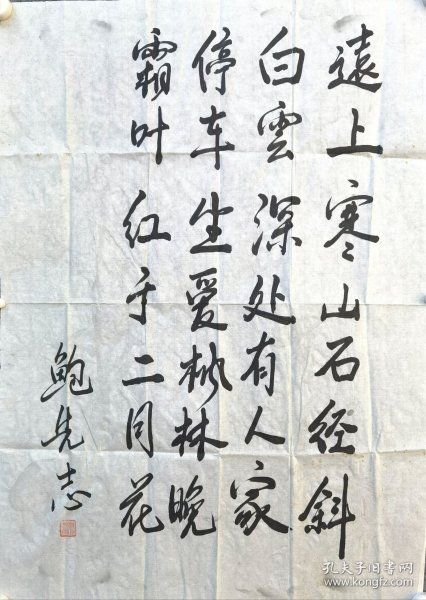 遠上寒山石径斜
白雲深处有人家
停车坐爱枫林晚
霜叶红于二月花
鲍先志
孔夫子旧书网
www.kongfz.com